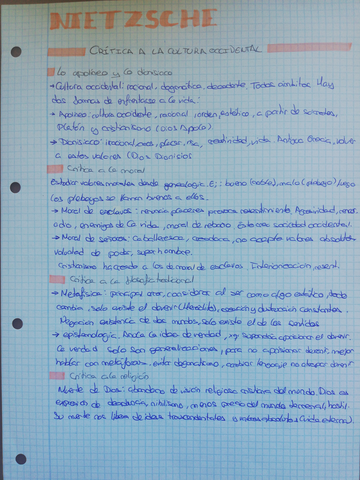 NIETZSCHE
CRÍTICA A LA CULTURA OCCIDENTAL
Lo apolíneo y lo dionisíaco
→ Cultura occidental: racional, dogmática, decadente. Todos ámbitos. Hay
dos formas de enfrentarse a la vida:
→ Apolíneo: cultura occidente, racional, orden, estático, a partir de Sócrates,
Platón y cristianismo (Dios Apolo).
→ Dionisíaco: irracionalidad, placer, risa, creatividad, vida. Antigua Grecia, volver
a estos valores (Dios Dionisio)
Crítica a la moral
Estudiar valores morales desde genealogía. Ej: bueno (noble), malo (plebeyo) / luego
los plebeyos se llaman buenos a ellos.
→ Moral de esclavos: renuncia placeres provoca resentimiento. Agresividad,
odio, enemigos de la vida, moral de rebaño. Esta es sociedad occidental.
→ Moral de señores: caballeresca, no aceptar valores absolutos
voluntad de poder, superhombre.
Cristianismo ha creado a los de moral de esclavos. Interiorización, resent.
Crítica a la filosofía tradicional
→ Metafísica: principal error, considerar al ser como algo estático, todo
cambia, solo existe el devenir (Heráclito), creación y destrucción constantes.
Negación existencia de dos mundos, solo existe el de los sentidos
→ epistemología: Ataca la idea de verdad, apresar el devenir.
La verdad solo son generalizaciones, para no apresar devenir, mejor
hablar con metáforas, evitar dogmatismo, cambiar lenguaje no atrapar devenir
Crítica a la religión
Muerte de Dios: abandono de visión religiosa cristiana del mundo. Dios es
expresión de decadencia, nihilismo, menosprecio del mundo terrenal, hostil.
Su muerte nos libera de ideas trascendentales y valores absolutos (vida eterna).